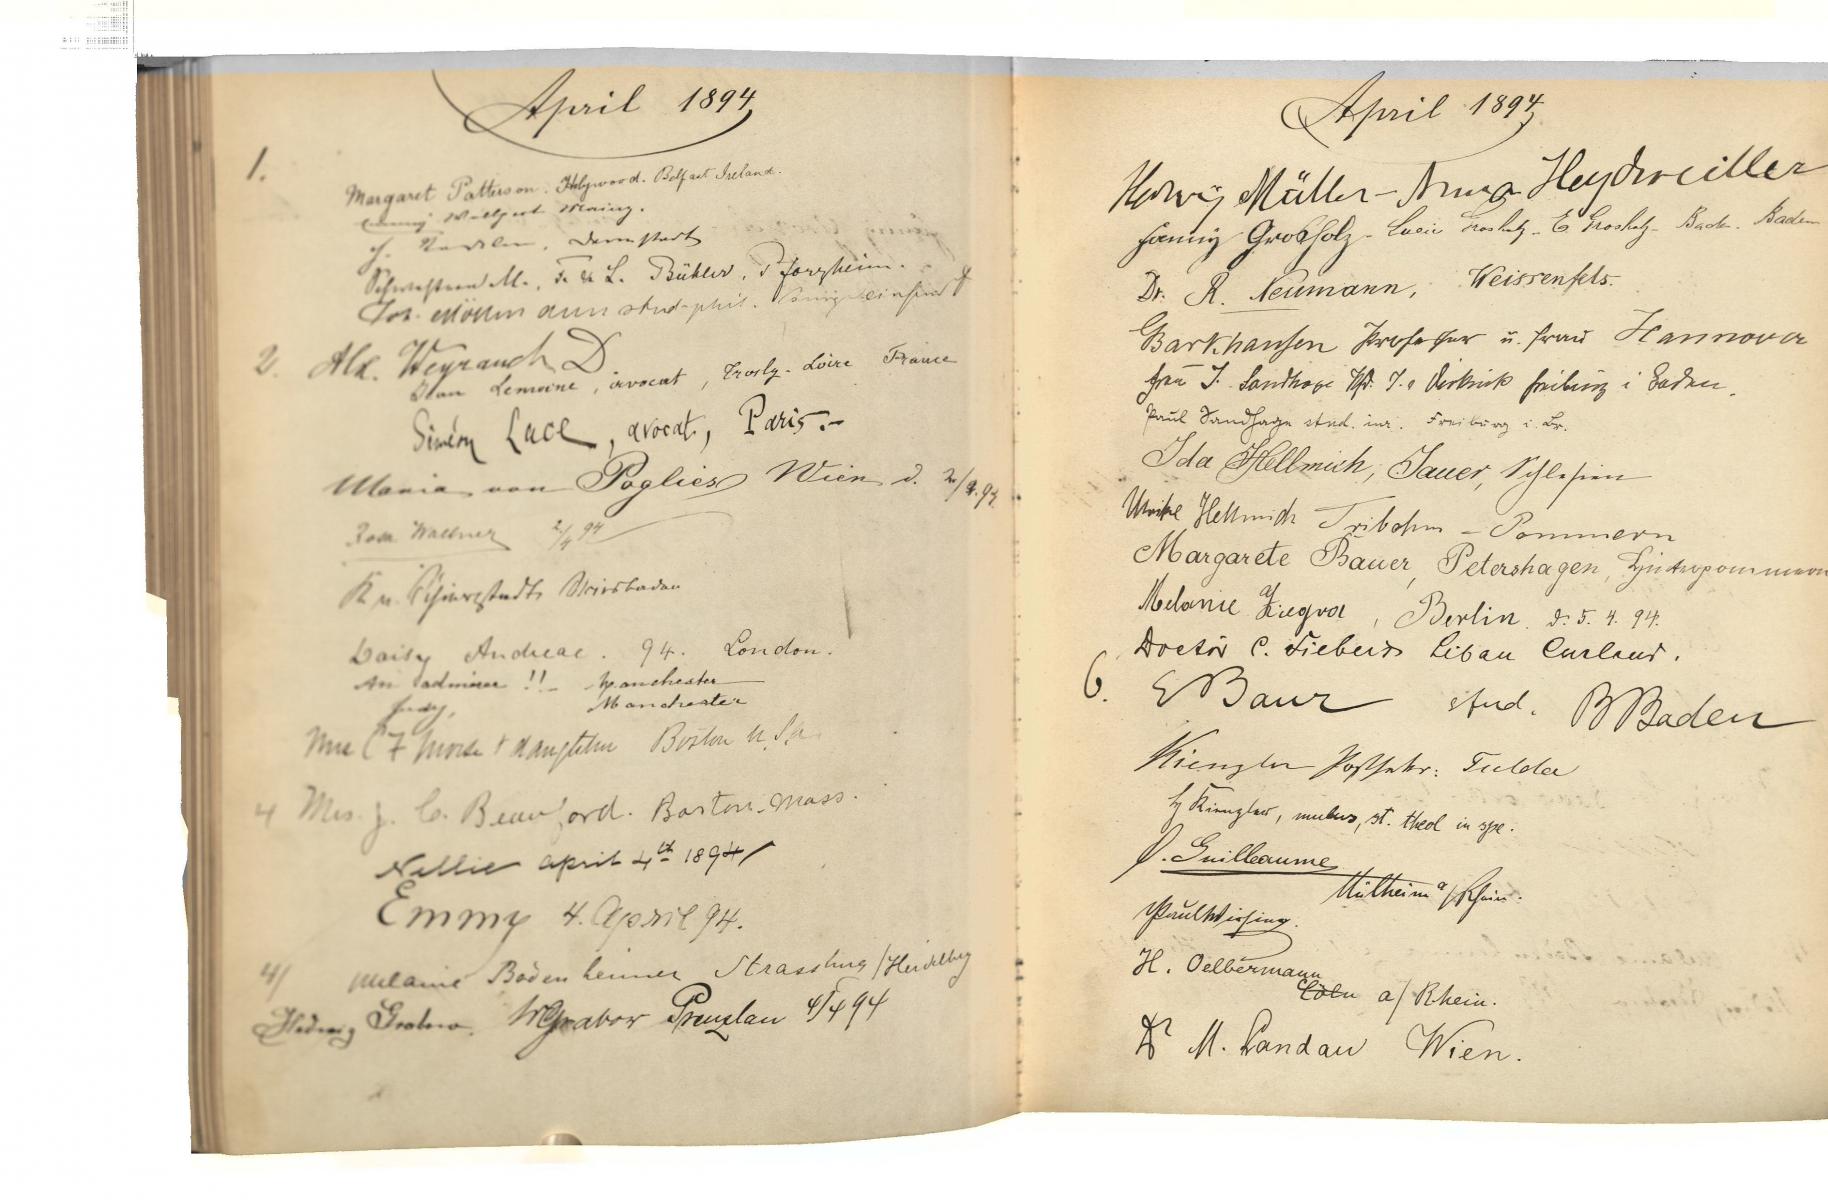 April 1894
1.
Margaret Patterson. Holywood. Belfast Ireland.
Darmstadt
M., F. & L. Bühler, Pforzheim.
stud. phil.
2. Alex. Weyrauch D
Lemoine, avocat, Loire France
Siméon Luce, avocat, Paris.-
Maria von Poglies Wien d. 2/4.94
Rosa Wallner 2/4 94
Wiesbaden
Daisy Andreae. 94. London.
An admirer!! Manchester
Judy, Manchester
Mrs C F Morse & daughter Boston U.S.a.
4 Mrs. J. C. Beauford. Boston. Mass.
Nellie April 4th 1894
Emmy 4. April 94.
4/ Melanie Bodenheimer Strassburg/Heidelbg
Hedwig Grabow. Grabow Prenzlau 4/4 94
April 1894
Hedwig Müller - Anna Heydweiller
Fanny Grosholz - Lucie Grosholz - E Grosholz - Bad. Baden
Dr. R. Neumann, Weissenfels.
Barkhausen Professor u. Frau Hannover
Frau J. Sandhage Freiburg i Baden.
Paul Sandhage stud. iur. Freiburg i. Br.
Ida Hellmich, Jauer, Schlesien
Ulrike Hellmich Tribohm - Pommern
Margarete Bauer, Petershagen, Hinterpommern
Melanie, Berlin d. 5. 4. 94.
Doctor C. Siebert Libau Curland.
6. E Baur stud. B Baden
Kienzler Postsekr. Fulda
Kienzler, mulus, st. theol in spe.
O. Guilleaume
Mülheim a/Rhein.
Paul Wirsing.
H. Oelbermann
Cöln a/Rhein.
Dr M. Landau Wien.